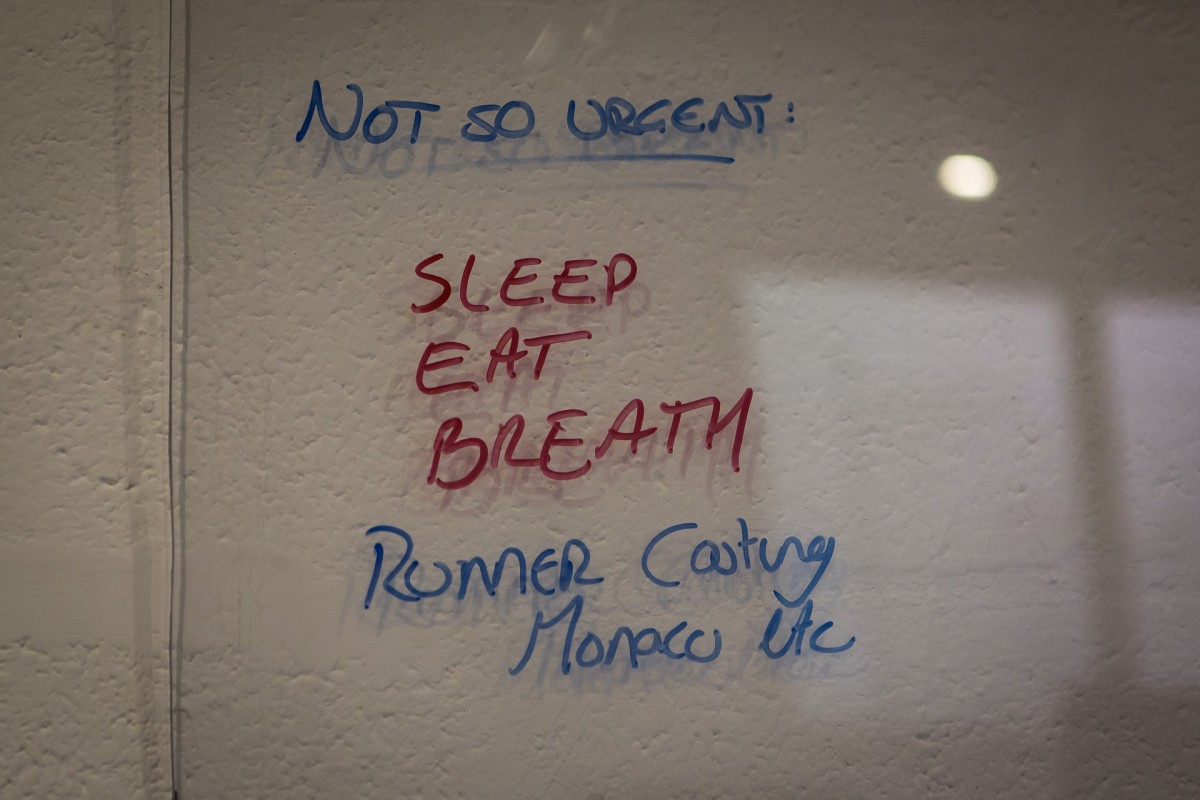 NOT SO URGENT:
SLEEP
EAT
BREATH
RUNNER Casting
Monaco etc